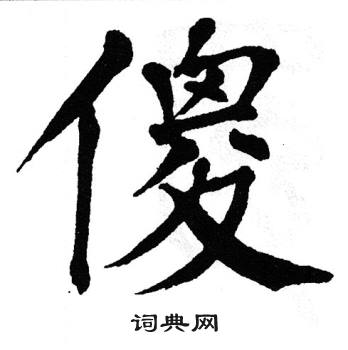 傻
词典网